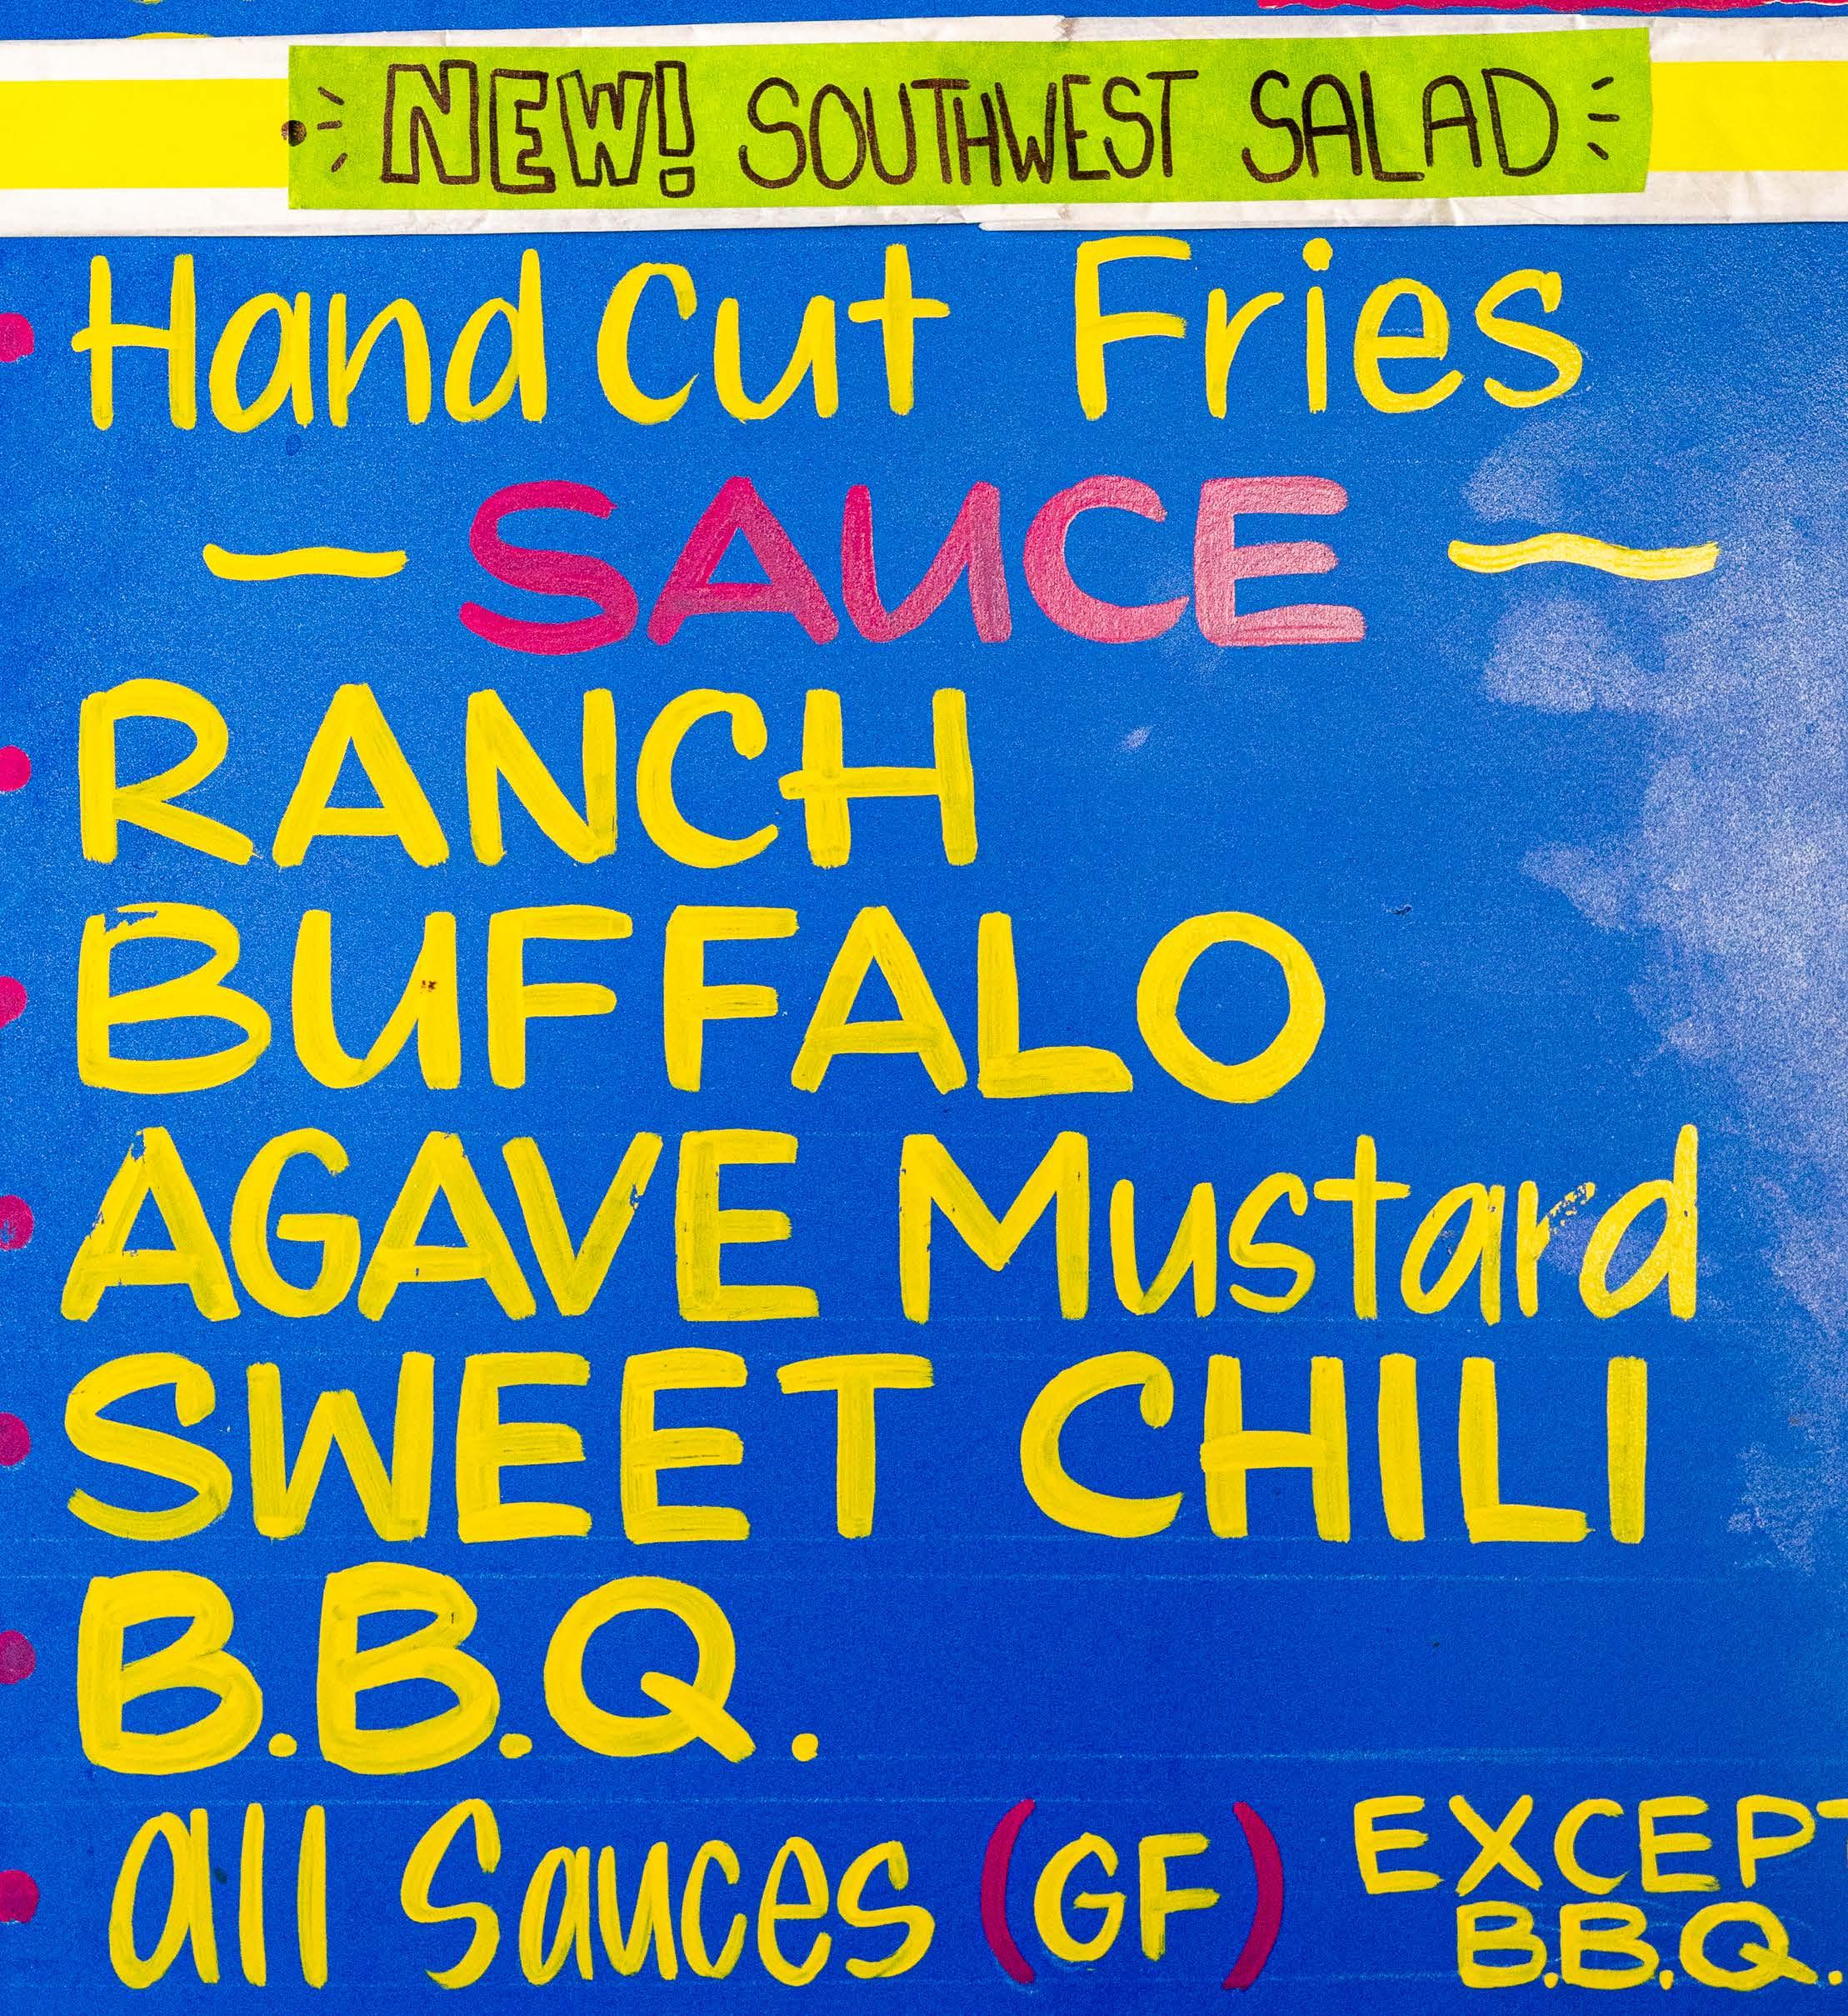 NEW! SOUTHWEST SALAD
Hand Cut Fries
~ SAUCE ~
RANCH
BUFFALO
AGAVE Mustard
SWEET CHILI
B.B.Q.
all Sauces (GF) EXCEPT
B.B.Q.